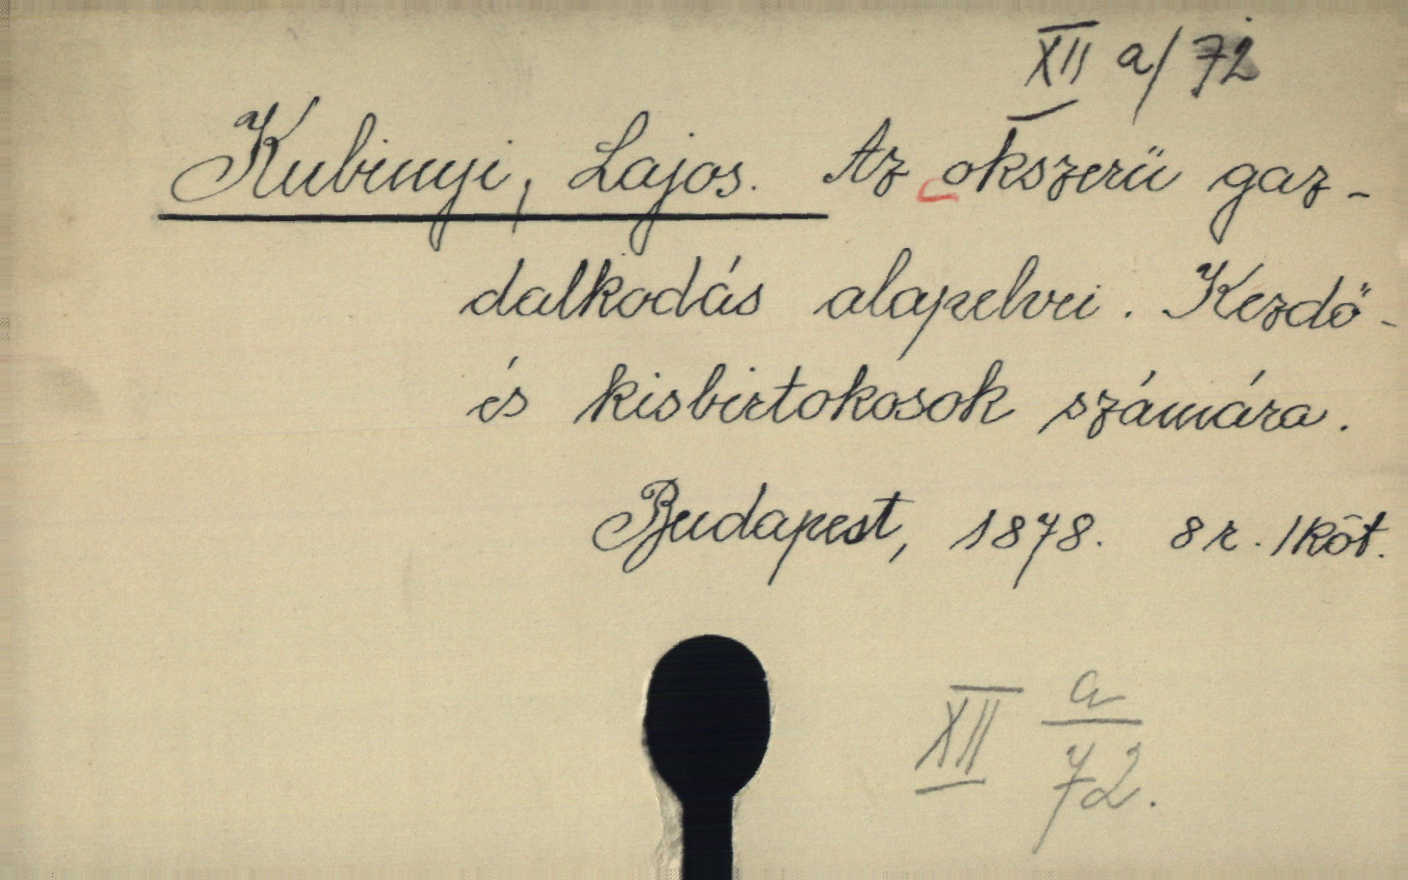 XII a/72
Kubinyi, Lajos. Az okszerü gaz-
dalkodás alapelvei. Kezdő-
és kisbirtokosok számára.
Budapest, 1878. 8 r. 1 köt.
XII a
72.